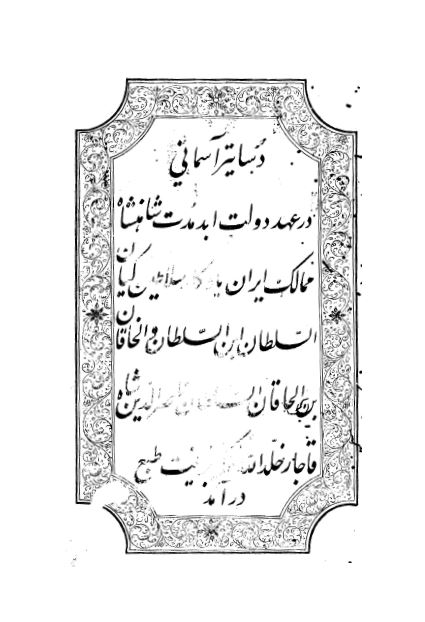 دساتیر آسمانی
در عهد دولت ابد مدت شاهنشاه
ممالک ایران یادگار سلاطین کیان
السلطان ابن السلطان و الخاقان
بن الخاقان السلطان ناصرالدین شاه
قاجار خلد الله طبع
در آمد